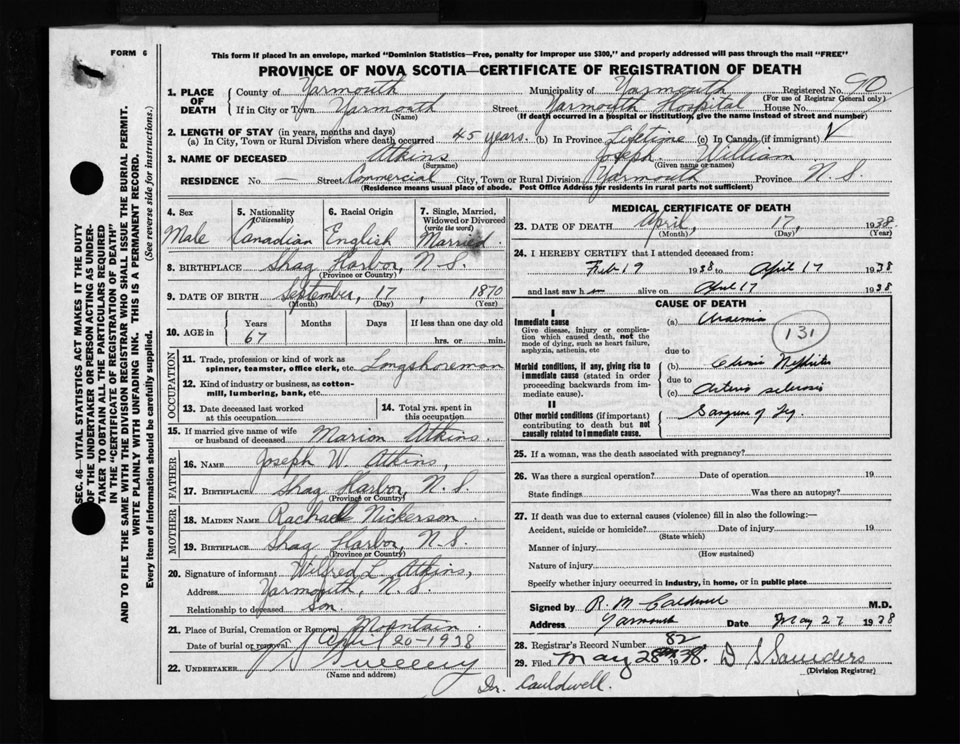 FORM 6
This form if placed in an envelope, marked "Dominion Statistics—Free, penalty for improper use $300," and properly addressed will pass through the mail "FREE"
PROVINCE OF NOVA SCOTIA—CERTIFICATE OF REGISTRATION OF DEATH
1. PLACE OF DEATH County of Yarmouth Municipality of Yarmouth Registered No. 90
(For use of Registrar General only)
If in City or Town Yarmouth Street Yarmouth Hospital House No.
(Name) (If death occurred in a hospital or institution, give the name instead of street and number)
2. LENGTH OF STAY (in years, months and days)
(a) In City, Town or Rural Division where death occurred 45 years. (b) In Province Lifetime (c) In Canada (if immigrant)
3. NAME OF DECEASED Atkins Joseph William
(Surname) (Given name or names)
RESIDENCE No. — Street Commercial City, Town or Rural Division Yarmouth Province N. S.
(Residence means usual place of abode. Post Office Address for residents in rural parts not sufficient)
SEC. 46—VITAL STATISTICS ACT MAKES IT THE DUTY
OF THE UNDERTAKER OR PERSON ACTING AS UNDER-
TAKER TO OBTAIN ALL THE PARTICULARS REQUIRED
IN THE "CERTIFICATE OF REGISTRATION OF DEATH"
AND TO FILE THE SAME WITH THE DIVISION REGISTRAR WHO SHALL ISSUE THE BURIAL PERMIT.
WRITE PLAINLY WITH UNFADING INK. THIS IS A PERMANENT RECORD.
Every item of information should be carefully supplied. (See reverse side for instructions.)
4. Sex 5. Nationality (Citizenship) 6. Racial Origin 7. Single, Married, Widowed or Divorced (write the word)
Male Canadian English Married
8. BIRTHPLACE Shag Harbor, N. S.
(Province or Country)
9. DATE OF BIRTH September, 17, 1870
(Month) (Day) (Year)
10. AGE in Years Months Days If less than one day old
67 hrs. or min.
OCCUPATION
11. Trade, profession or kind of work as spinner, teamster, office clerk, etc. Longshoreman
12. Kind of industry or business, as cotton-mill, lumbering, bank, etc.
13. Date deceased last worked at this occupation 14. Total yrs. spent in this occupation
15. If married give name of wife or husband of deceased Marion Atkins.
FATHER
16. NAME Joseph W. Atkins,
17. BIRTHPLACE Shag Harbor, N. S.
(Province or Country)
MOTHER
18. MAIDEN NAME Rachael Nickerson
19. BIRTHPLACE Shag Harbor, N. S.
(Province or Country)
20. Signature of informant Wilfred L. Atkins,
Address Yarmouth, N. S.
Relationship to deceased son.
21. Place of Burial, Cremation or Removal Mountain
Date of burial or removal April 20-1938
22. UNDERTAKER Sweeny
(Name and address)
MEDICAL CERTIFICATE OF DEATH
23. DATE OF DEATH April, 17, 1938
(Month) (Day) (Year)
24. I HEREBY CERTIFY that I attended deceased from:
Feb 19 1938 to April 17 1938
and last saw him alive on April 17 1938
CAUSE OF DEATH
I
Immediate cause (a) Uraemia
Give disease, injury or complication which caused death, not the mode of dying, such as heart failure, asphyxia, asthenia, etc
131
due to
Morbid conditions, if any, giving rise to immediate cause (stated in order proceeding backwards from immediate cause). (b) Chronic Nephritis
due to
(c) Arterio sclerosis
II
Other morbid conditions (if important) contributing to death but not causally related to immediate cause. Gangrene of leg
25. If a woman, was the death associated with pregnancy?
26. Was there a surgical operation? Date of operation 19
State findings Was there an autopsy?
27. If death was due to external causes (violence) fill in also the following:—
Accident, suicide or homicide? Date of injury 19
(State which)
Manner of injury
(How sustained)
Nature of injury
Specify whether injury occurred in industry, in home, or in public place
Signed by R. M Caldwell M.D.
Address Yarmouth Date May 27 1938
28. Registrar's Record Number 82
29. Filed May 28 1938. D S Saunders
(Division Registrar)
Dr. Cauldwell.